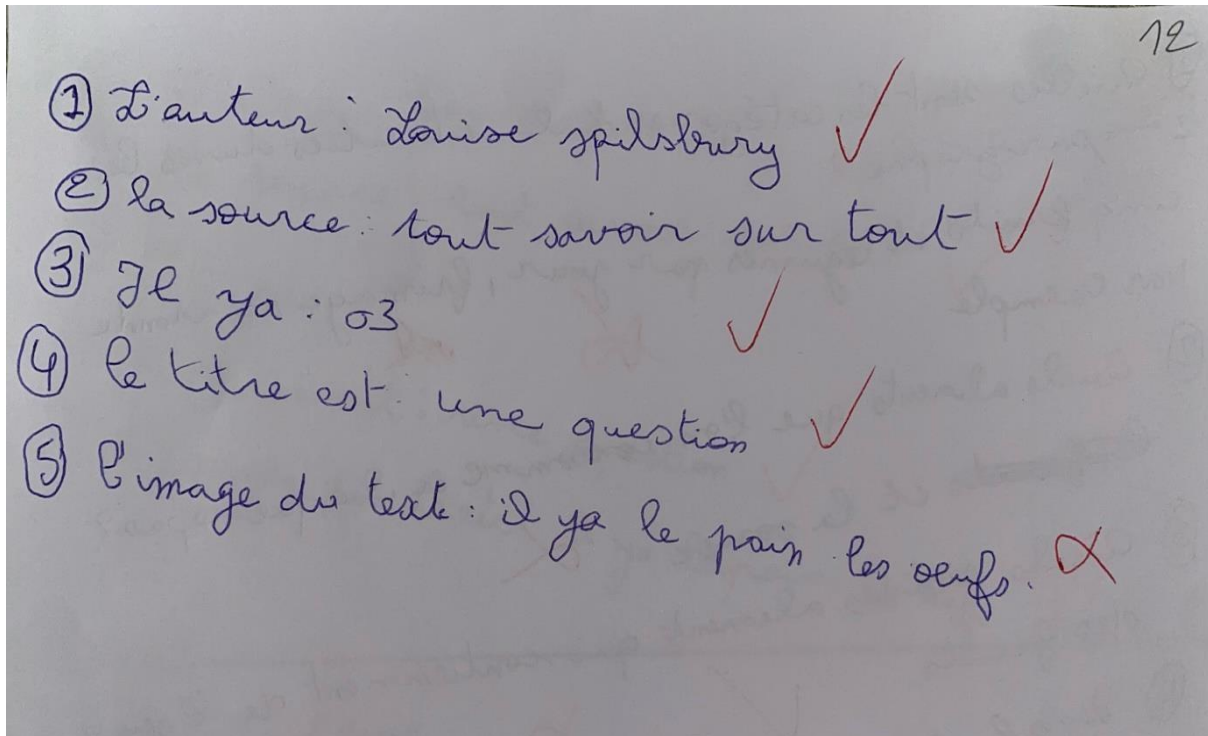 12
① L'auteur : Louise spilsbury
② la source : tout savoir sur tout
③ Il ya : 03
④ le titre est une question
⑤ l'image du text : il ya le pain les œufs.